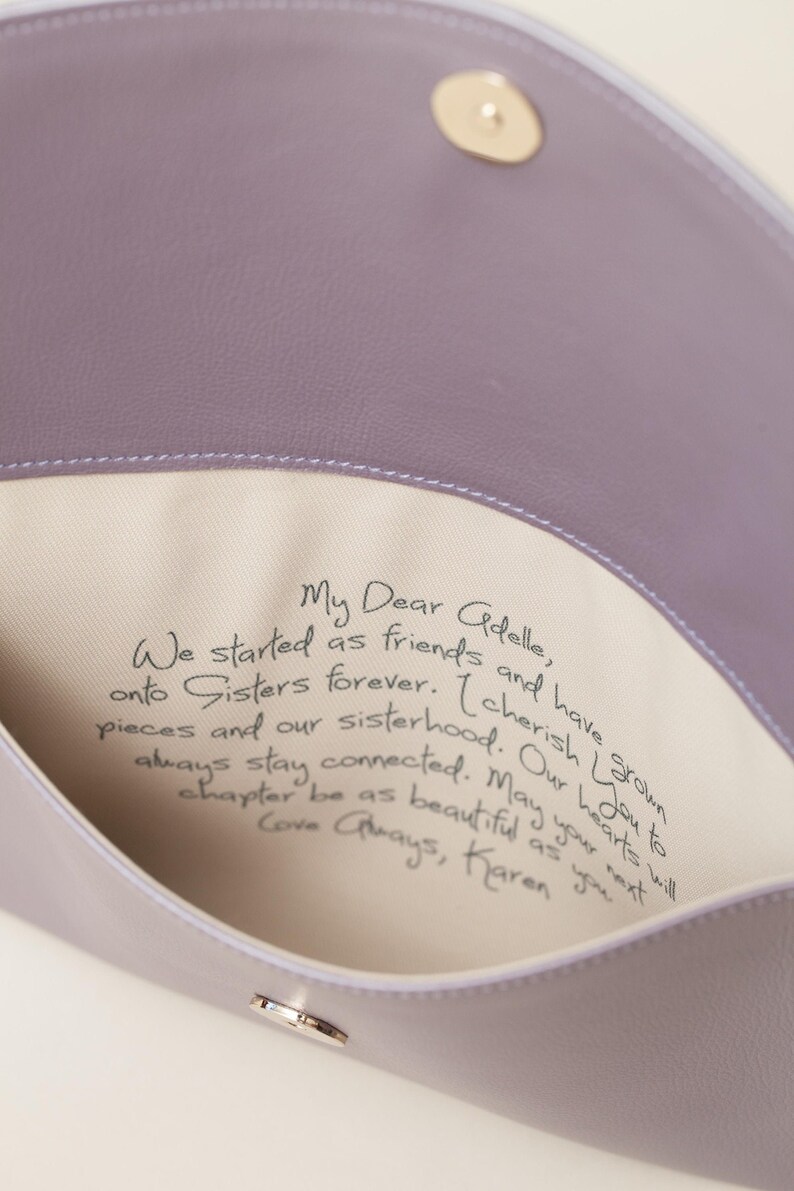 My Dear Adelle,
We started as friends and have grown
onto Sisters forever. I cherish You to
pieces and our sisterhood. Our hearts will
always stay connected. May your next
chapter be as beautiful as you
Love Always, Karen